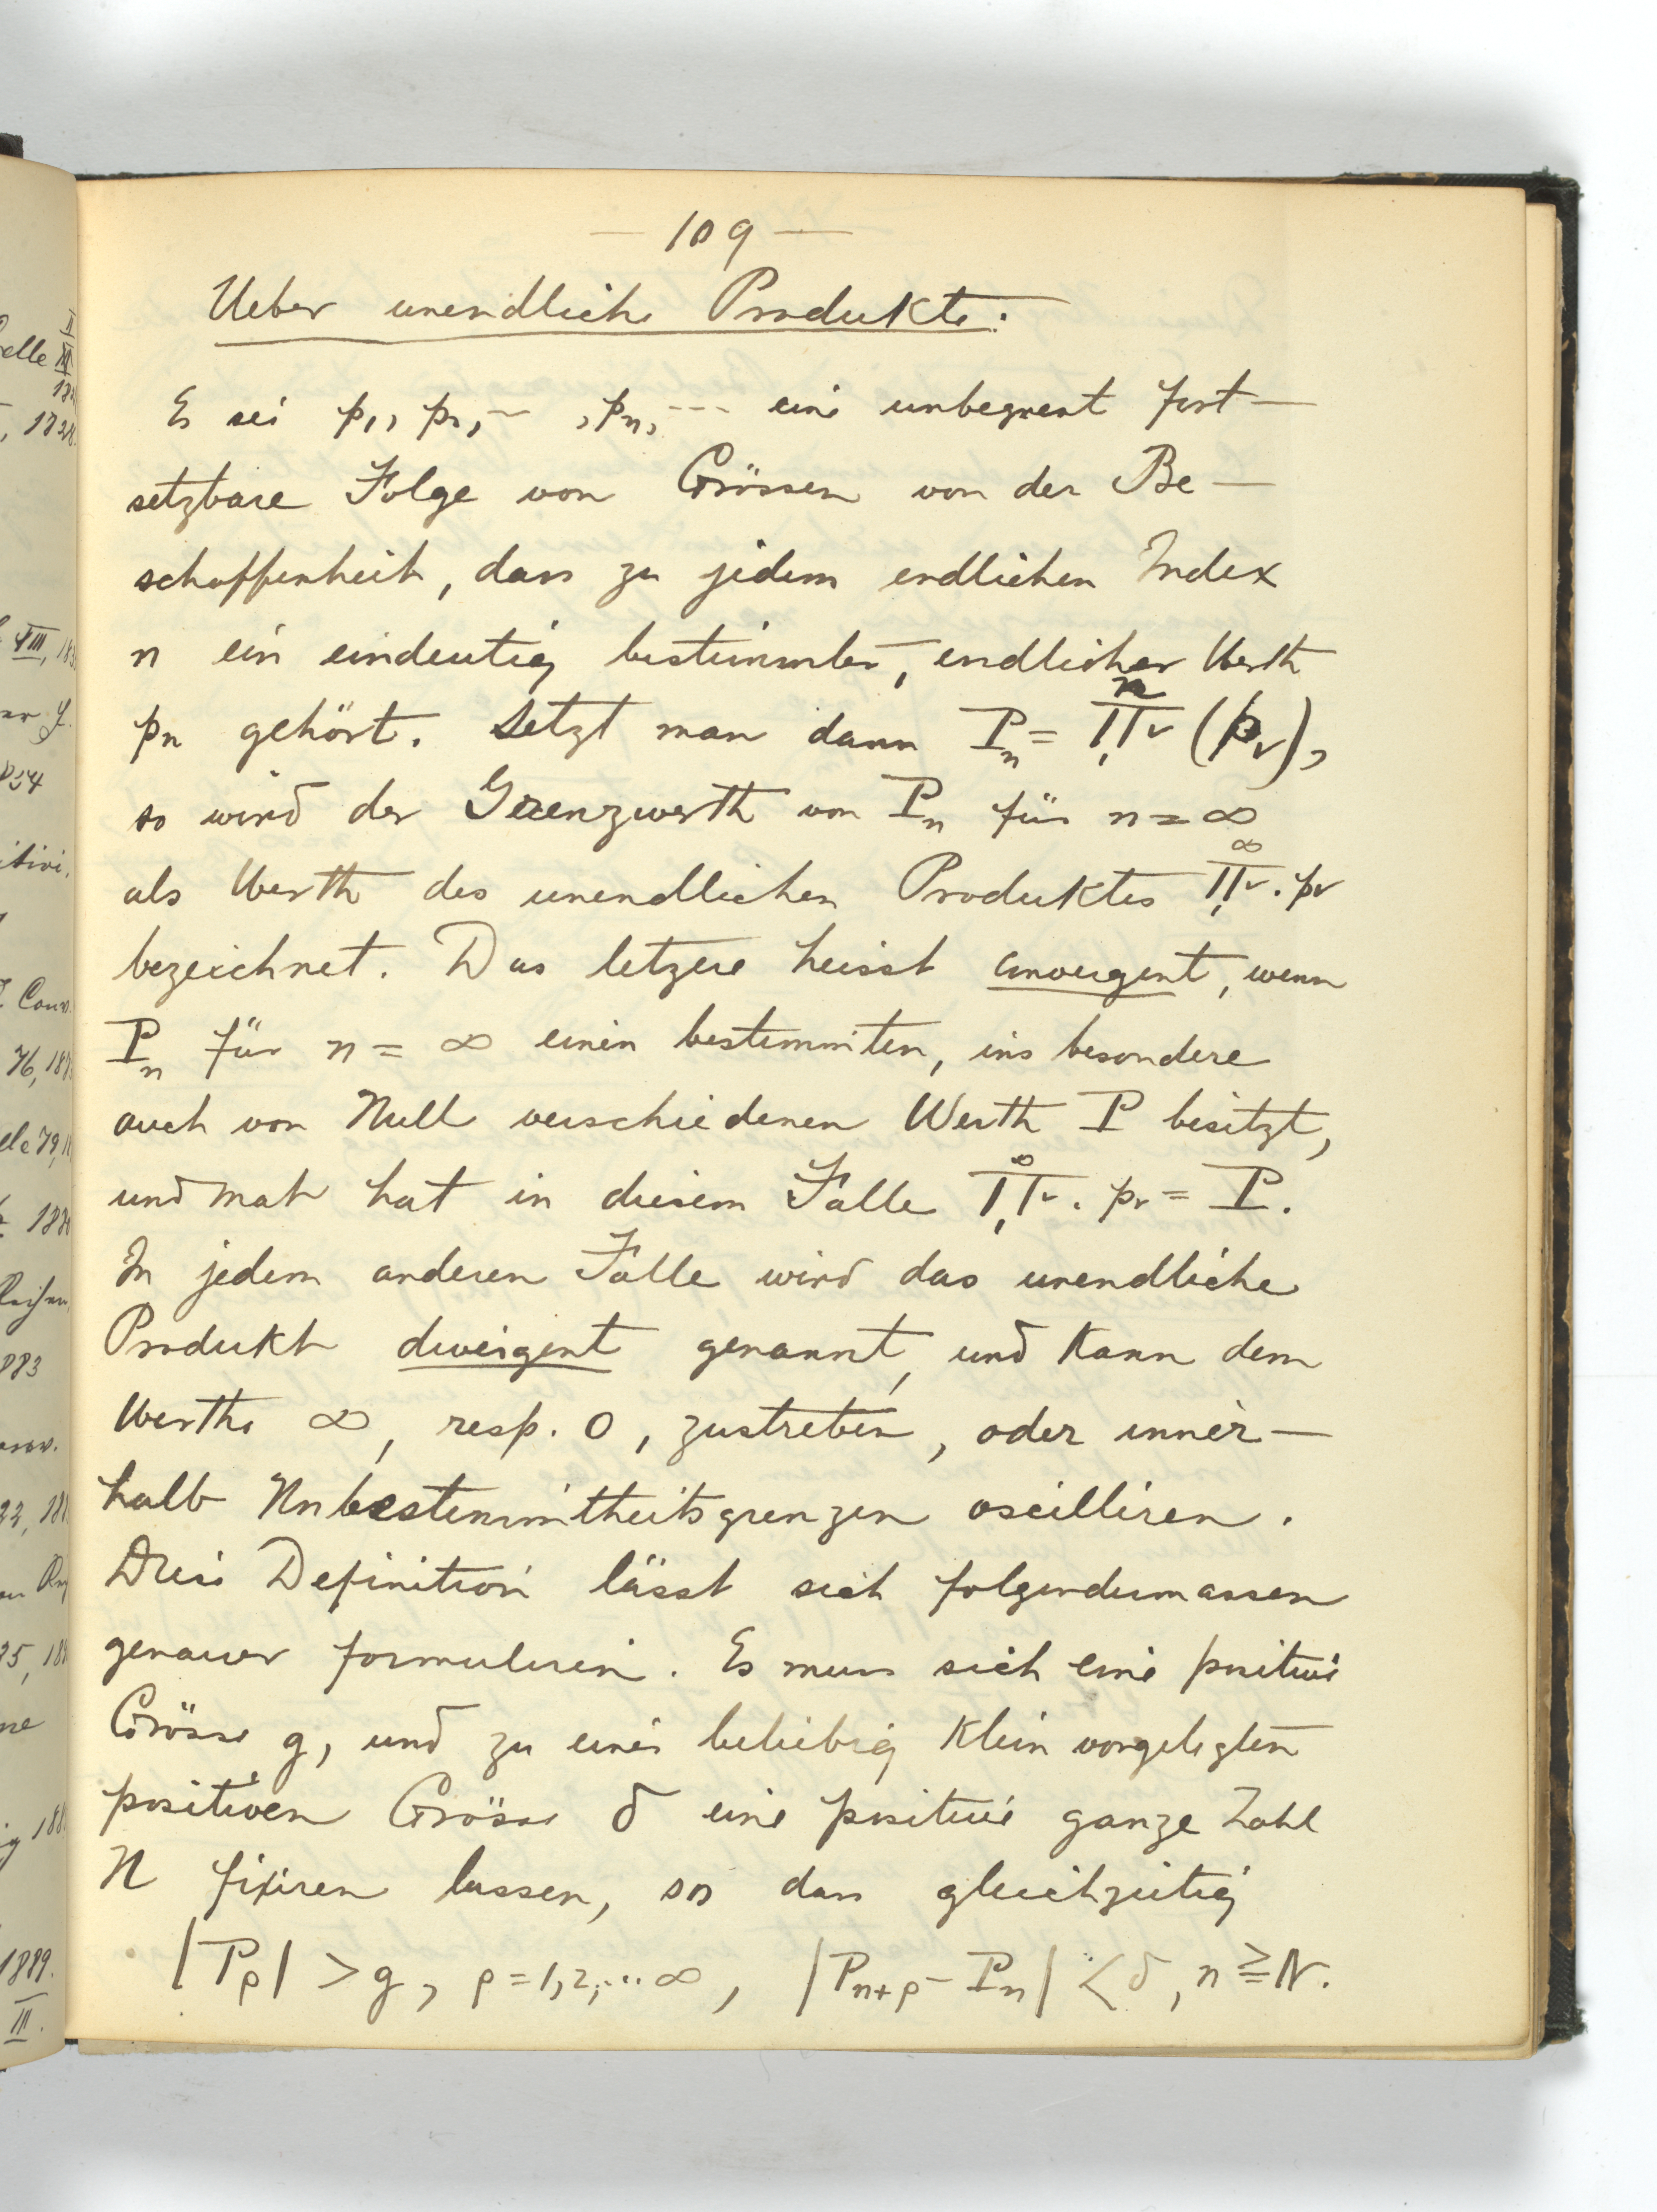 — 109 —
Ueber unendliche Produkte.
Es sei p₁, p₂, --- , pₙ, --- eine unbegrenzt fort-
setzbare Folge von Grössen von der Be-
schaffenheit, dass zu jedem endlichen Index
n ein eindeutig bestimmter, endlicher Werth
pₙ gehört. Setzt man dann Pₙ = ∏₁ⁿᵥ (pᵥ),
so wird der Grenzwerth von Pₙ für n = ∞
als Werth des unendlichen Produktes ∏₁^∞ᵥ . pᵥ
bezeichnet. Das letzere heisst convergent, wenn
Pₙ für n = ∞ einen bestimmten, ins besondere
auch von Null verschiedenen Werth P besitzt,
und man hat in diesem Falle ∏₁^∞ᵥ . pᵥ = P.
In jedem anderen Falle wird das unendliche
Produkt divergent genannt, und kann dem
Werthe ∞, resp. 0, zustreben, oder inner-
halb Unbestimmtheitsgrenzen oscilliren.
Diese Definition lässt sich folgendermassen
genauer formuliren. Es muss sich eine positive
Grösse g, und zu einer beliebig klein vorgelegten
positiven Grösse δ eine positive ganze Zahl
N fixiren lassen, so dass gleichzeitig
|Pᵨ| > g, ρ = 1, 2, ... ∞, |Pₙ₊ᵨ - Pₙ| < δ, n ≧ N.
elle III
, 1828.
VIII, 18
1834
Conv.
76, 188
79, 1
1883
22, 188
25, 188
188
1889.
III.